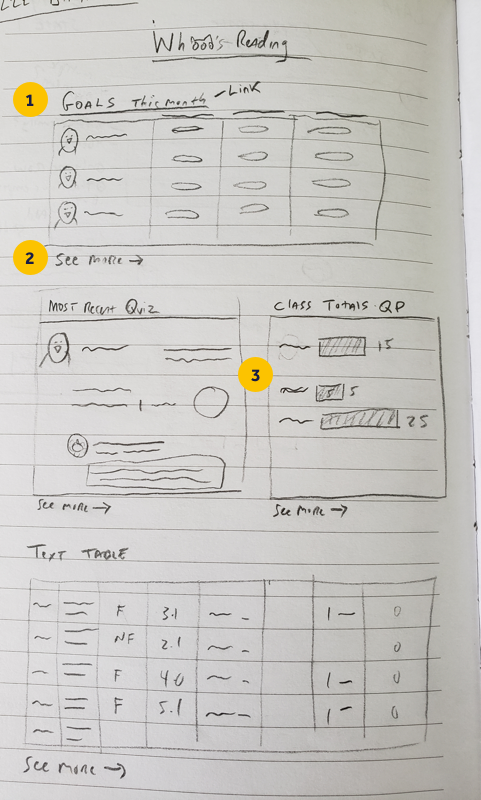 Whooo's Reading
1
GOALS This Month - Link
2
See more →
Most Recent Quiz
Class Totals QP
15
3
5 5
25
See more →
See more →
Text Table
F 3.1 1 0
NF 2.1 0
F 4.0 1 0
F 5.1 1 0
See more →